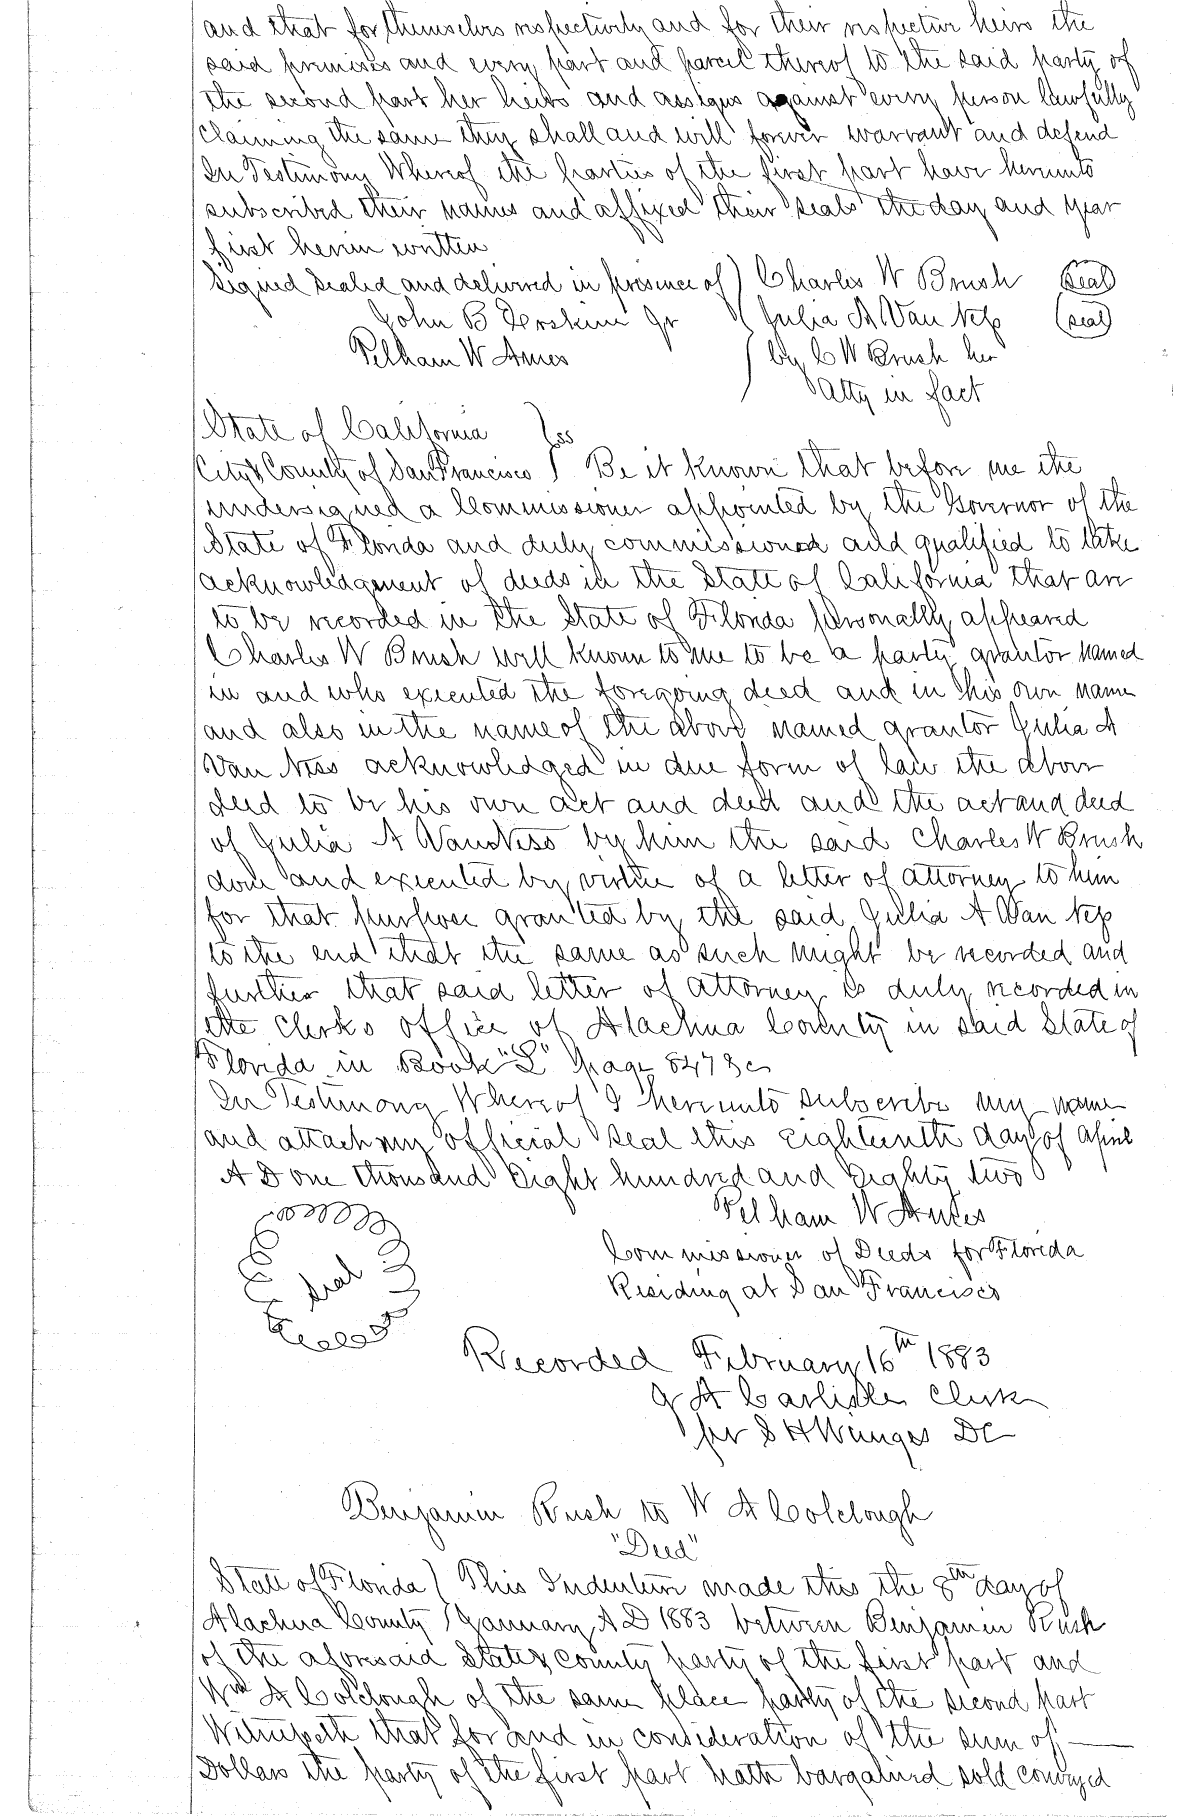 and that for themselves respectively and for their respective heirs the
said premises and every part and parcel thereof to the said party of
the second part her heirs and assigns against every person lawfully
claiming the same they shall and will forever warrant and defend
In Testimony Whereof the parties of the first part have hereunto
subscribed their names and affixed their seals the day and year
first herein written
Signed sealed and delivered in presence of ) Charles W Brush (seal)
John B Erskine Jr Julia A Van Ness (seal)
Pelham W Ames by C W Brush her
Atty in fact
State of California } ss
City & County of San Francisco } Be it known that before me the
undersigned a Commissioner appointed by the Governor of the
State of Florida and duly commissioned and qualified to take
acknowledgement of deeds in the State of California that are
to be recorded in the State of Florida personally appeared
Charles W Brush well known to me to be a party grantor named
in and who executed the foregoing deed and in his own name
and also in the name of the above named grantor Julia A
Van Ness acknowledged in due form of law the above
deed to be his own act and deed and the act and deed
of Julia A Van Ness by him the said Charles W Brush
done and executed by virtue of a letter of attorney to him
for that purpose granted by the said Julia A Van Ness
to the end that the same as such might be recorded and
further that said letter of attorney is duly recorded in
the Clerks office of Alachua County in said State of
Florida in Book "L" page 847 &c
In Testimony Whereof I hereunto subscribe my name
and attach my official seal this Eighteenth day of April
A D one thousand Eight hundred and Eighty two
Pelham W Ames
Seal Commissioner of Deeds for Florida
Residing at San Francisco
Recorded February 16th 1883
J A Carlisle Clerk
per S H Wienges DC
Benjamin Rush to W A Colclough
"Deed"
State of Florida ) This Indenture made this the 8th day of
Alachua County ) January A D 1883 between Benjamin Rush
of the aforesaid State & County party of the first part and
Wm A Colclough of the same place party of the second part
Witnesseth that for and in consideration of the sum of ——
Dollars the party of the first part hath bargained sold conveyed